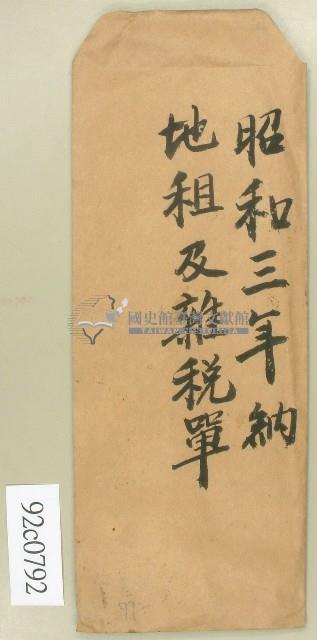 昭和三年納
地租及雜稅單
國史館臺灣文獻館
TAIWAN HISTORICA
92c0792